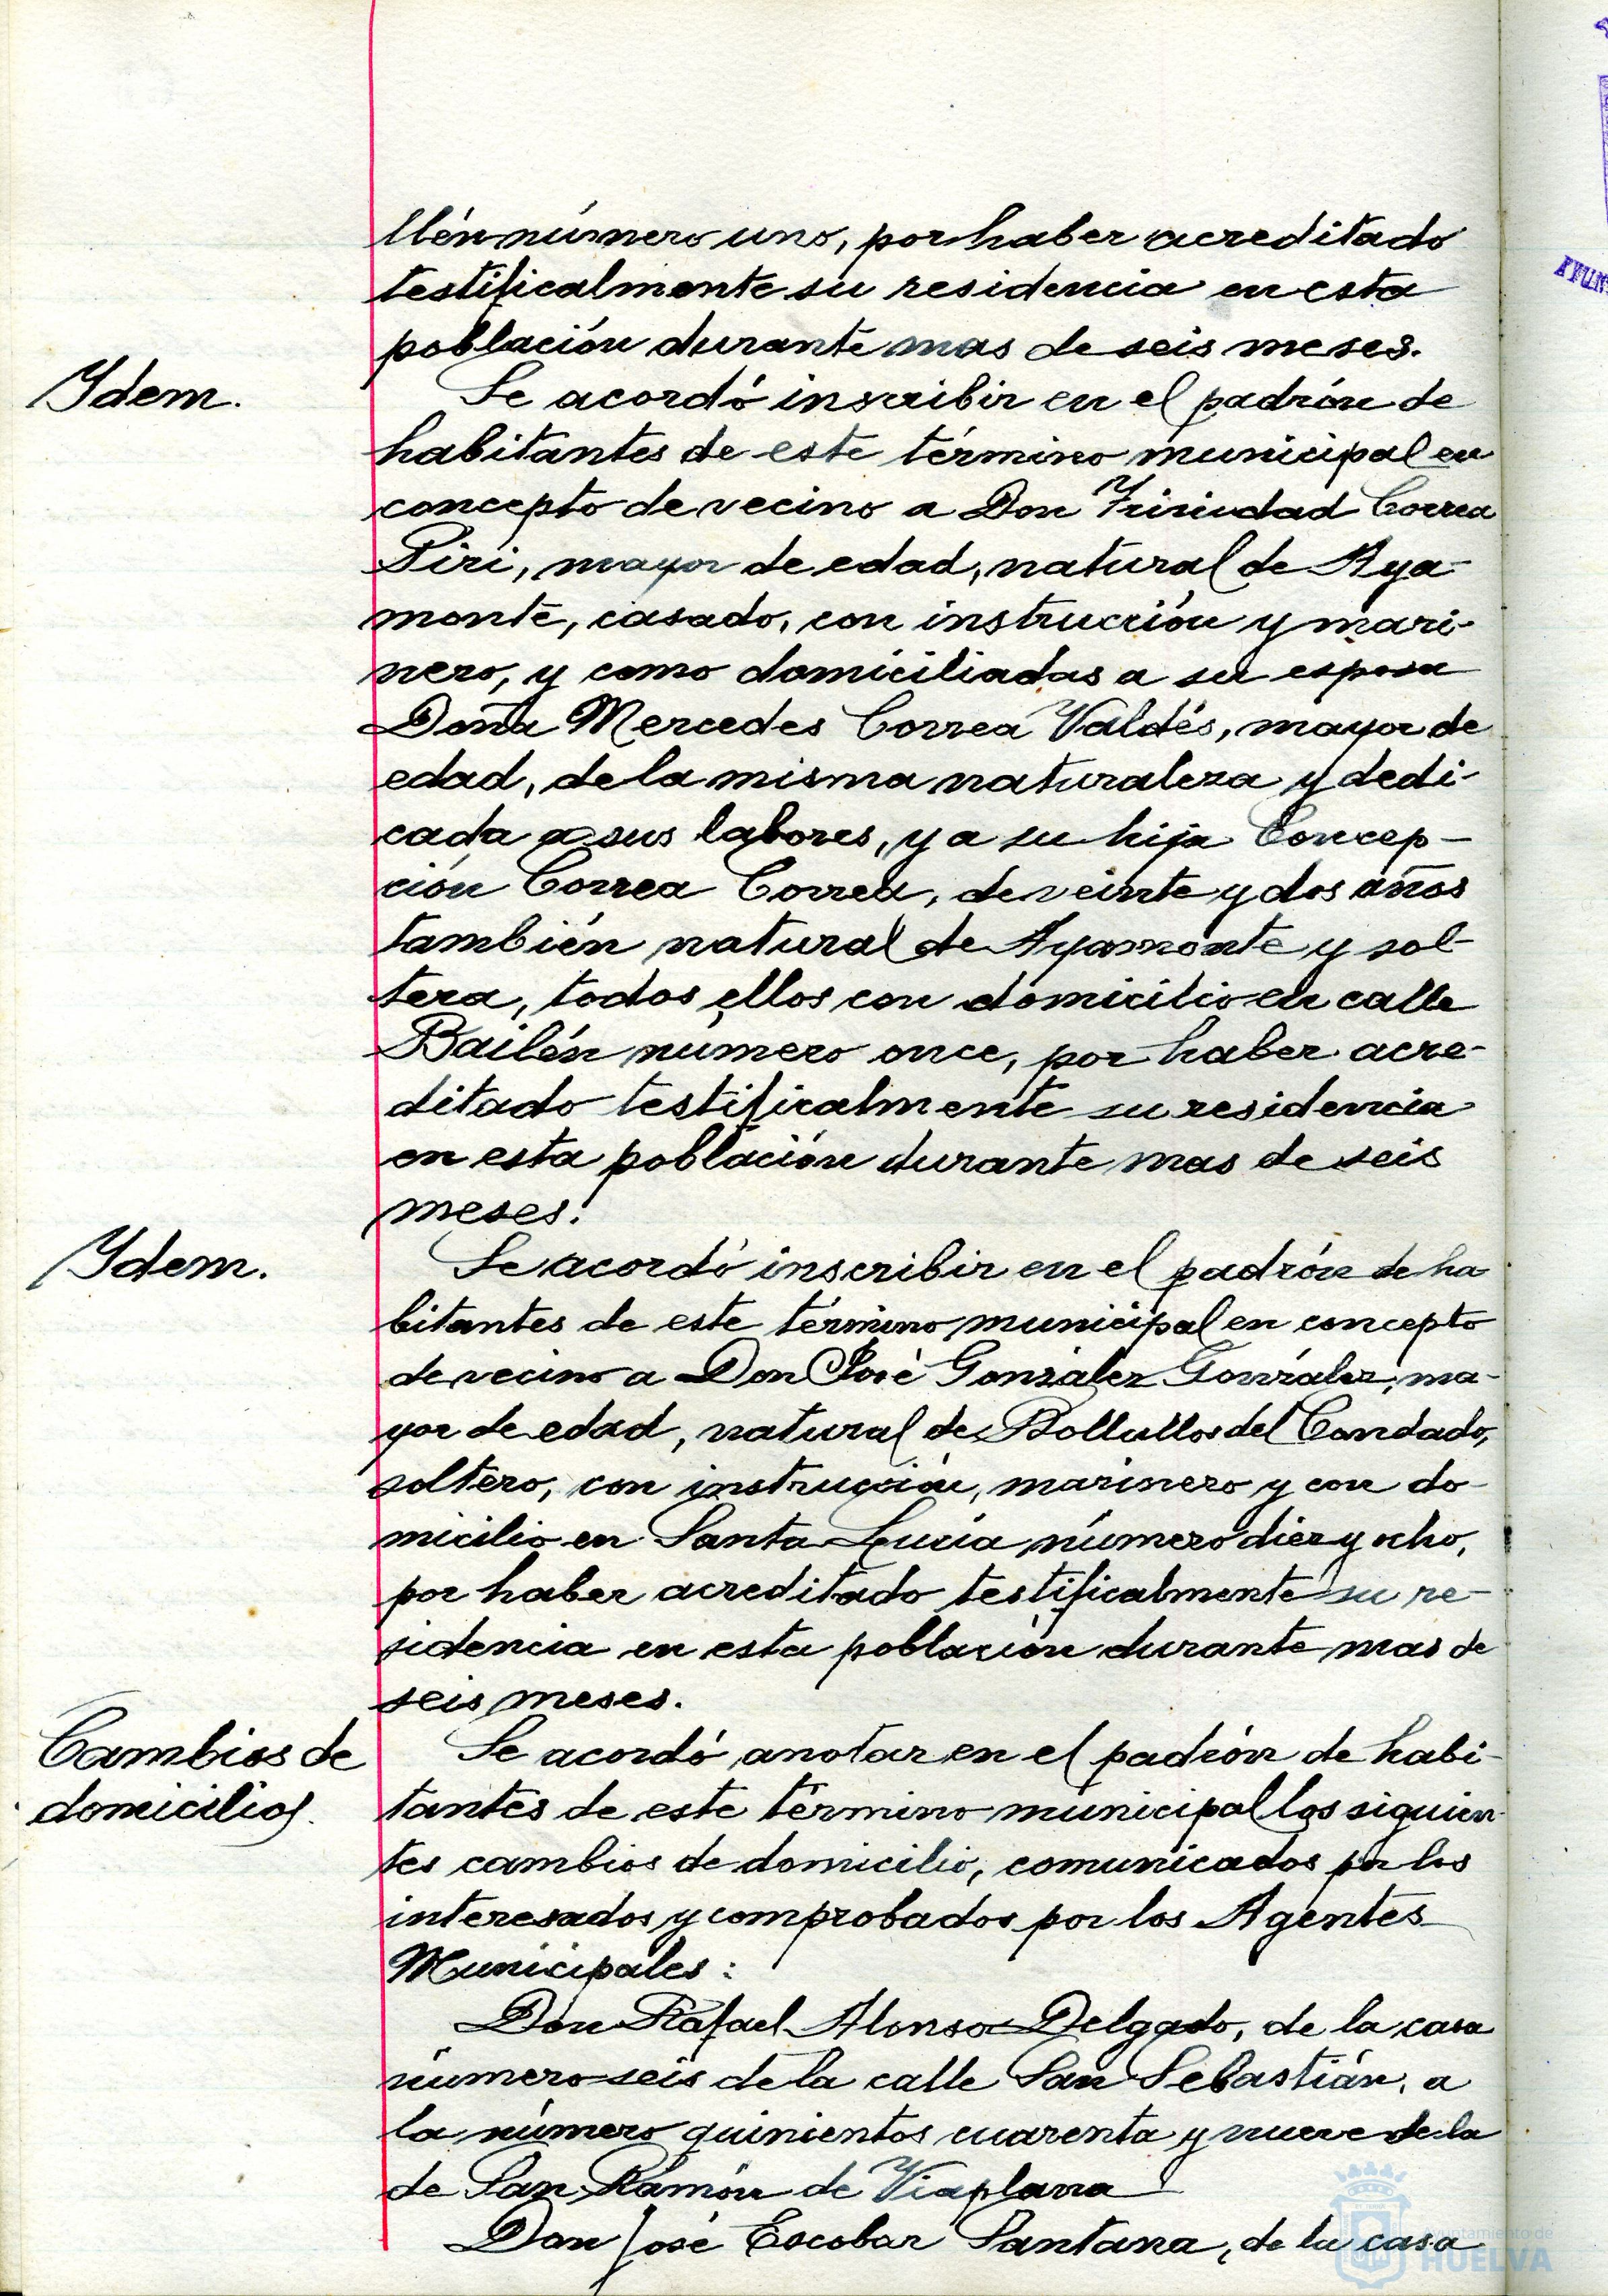 llén número uno, por haber acreditado
testificalmente su residencia en esta
población durante mas de seis meses.
Ydem.
Se acordó inscribir en el padrón de
habitantes de este término municipal en
concepto de vecino a Don Trinidad Correa
Piri, mayor de edad, natural de Aya-
monte, casado, con instrucción y mari-
nero, y como domiciliadas a su esposa
Doña Mercedes Correa Valdés, mayor de
edad, de la misma naturaleza y dedi-
cada a sus labores, y a su hija Concep-
ción Correa Correa, de veinte y dos años
también natural de Ayamonte y sol-
tera, todos ellos con domicilio en calle
Bailén número once, por haber acre-
ditado testificalmente su residencia
en esta población durante mas de seis
meses.
Ydem.
Se acordó inscribir en el padrón de ha
bitantes de este término municipal en concepto
de vecino a Don José González González, ma-
yor de edad, natural de Bollullos del Condado,
soltero, con instrucción, marinero y con do-
micilio en Santa Lucía número diez y ocho,
por haber acreditado testificalmente su re-
sidencia en esta población durante mas de
seis meses.
Cambios de
domicilios.
Se acordó anotar en el padrón de habi-
tantes de este término municipal los siguien-
tes cambios de domicilio, comunicados por los
interesados y comprobados por los Agentes
Municipales:
Don Rafael Alonso Delgado, de la casa
número seis de la calle San Sebastián, a
la número quinientos cuarenta y nueve de la
de San Ramón de Viaplana
Don José Escobar Santana, de la casa
Ayuntamiento de
HUELVA